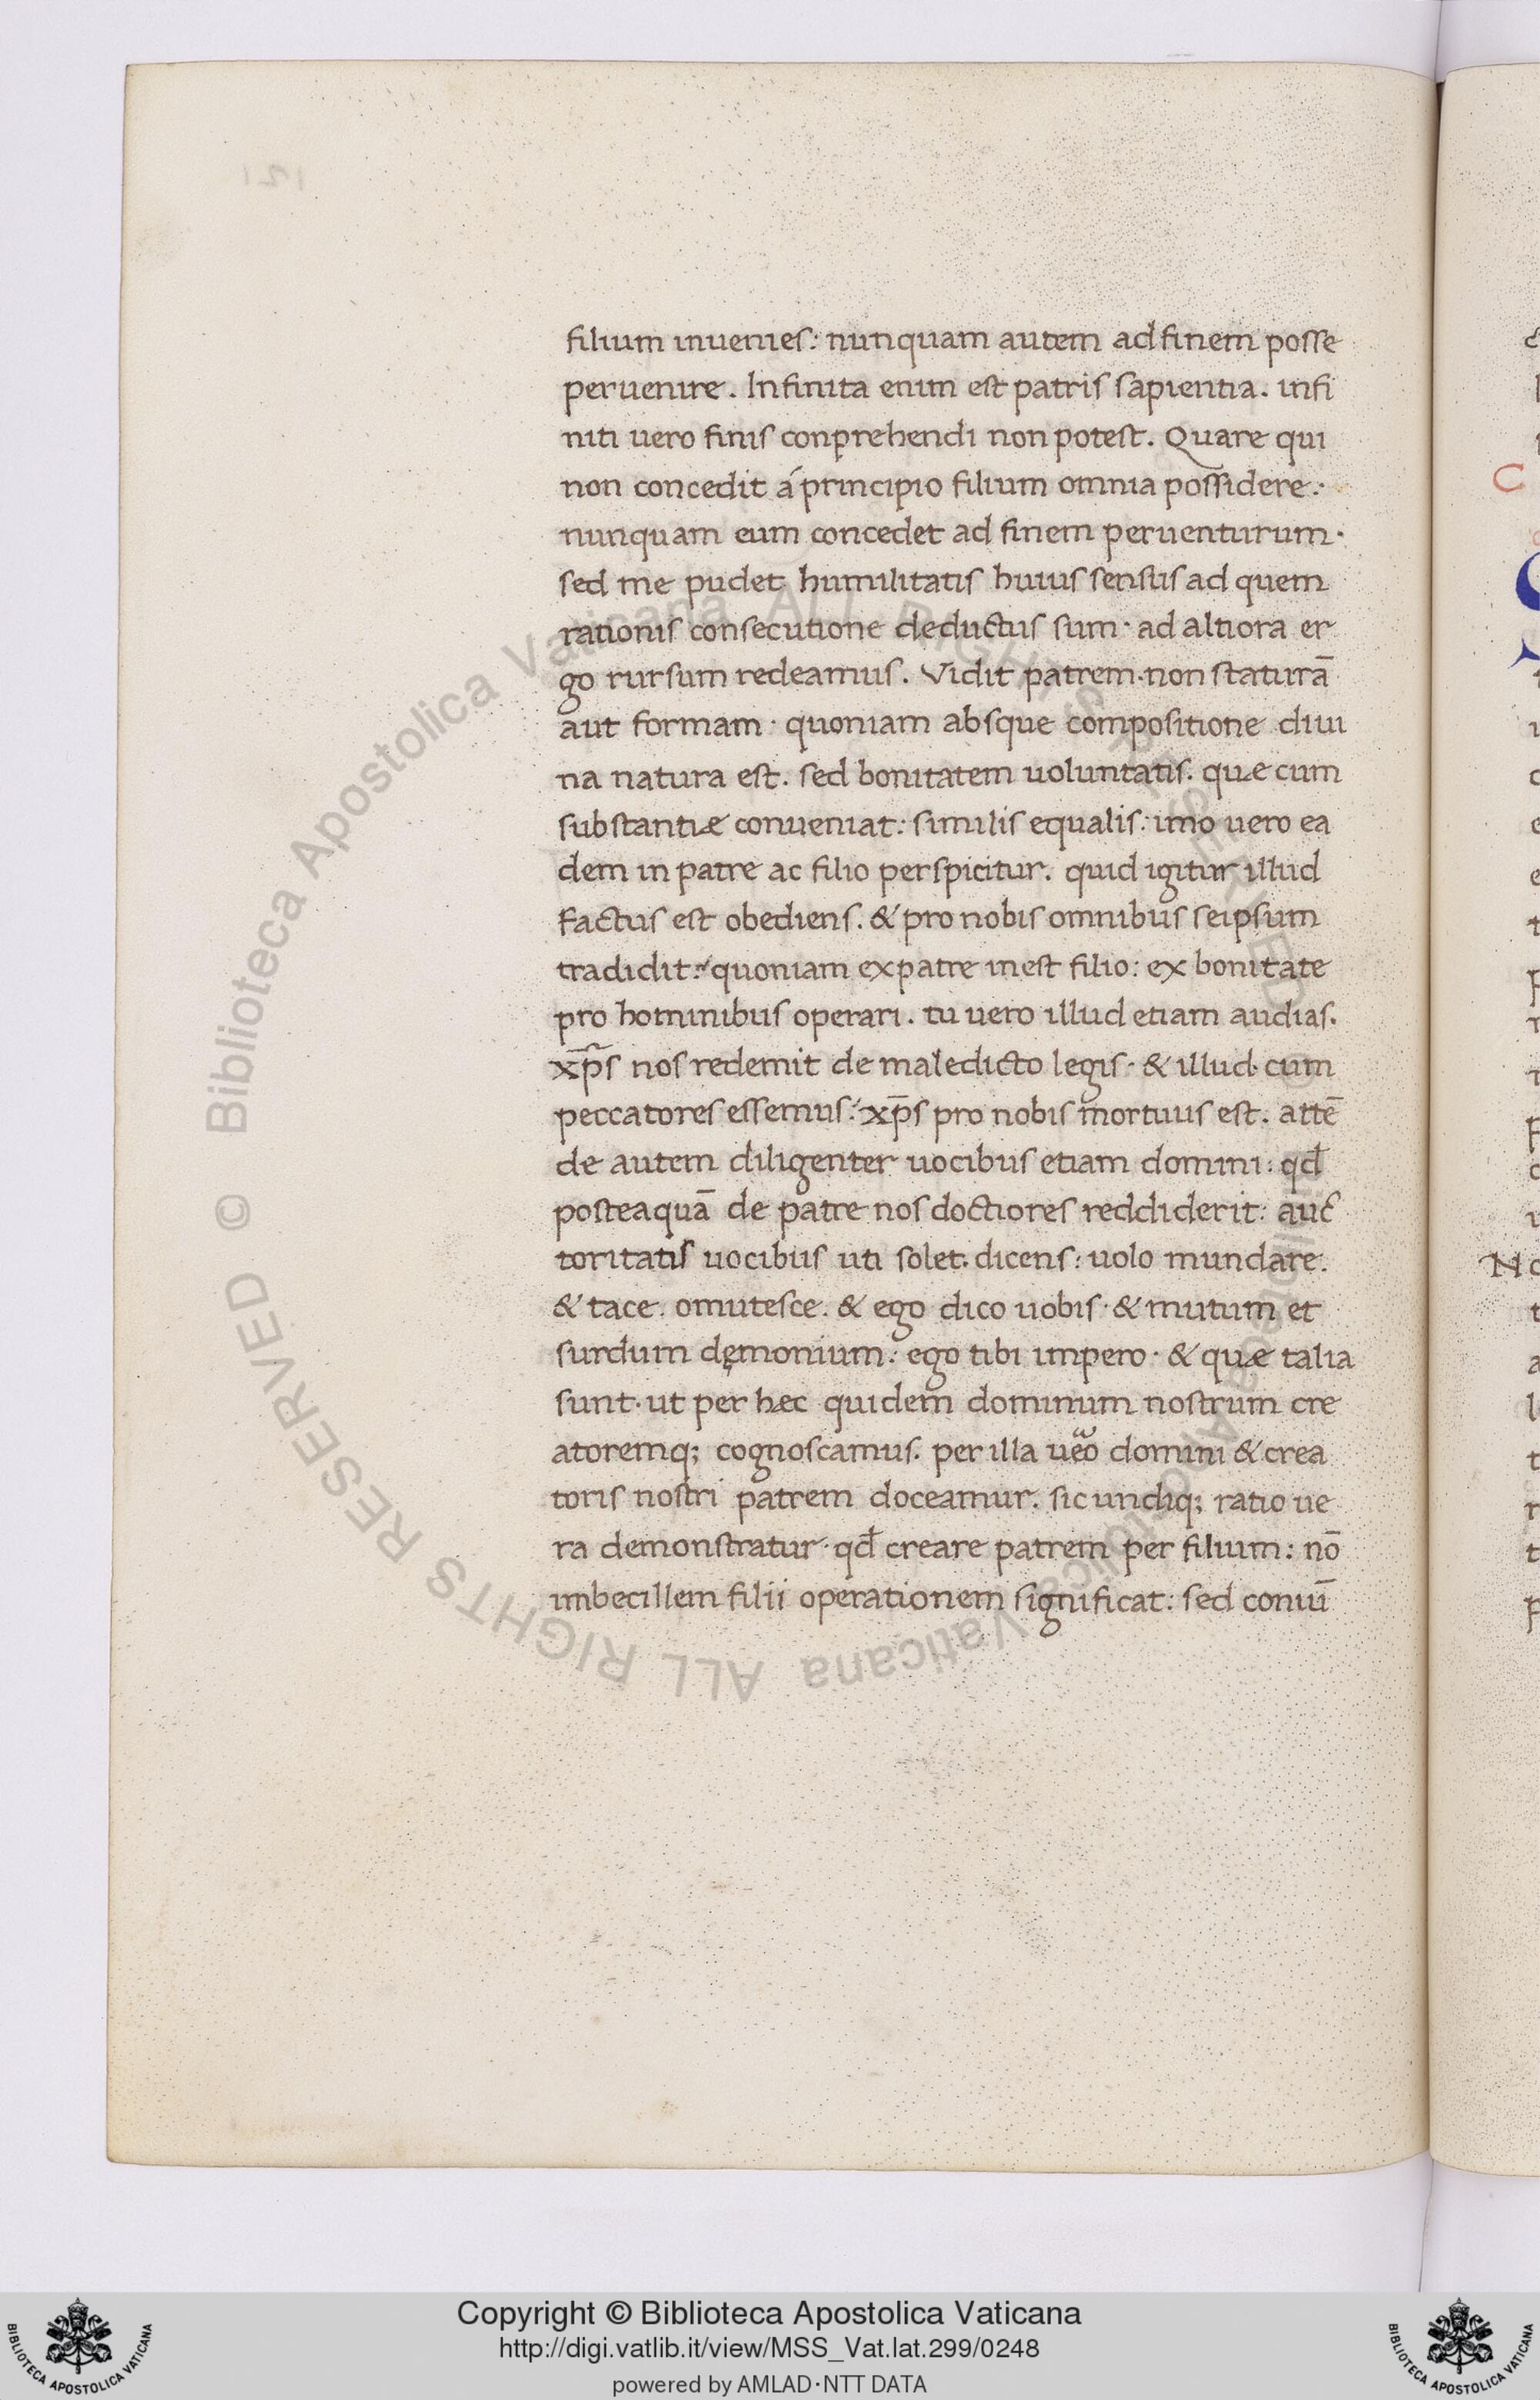 filium inuenies: nunquam autem ad finem posse
peruenire. Infinita enim est patris sapientia. infi
niti uero finis conprehendi non potest. Quare qui
non concedit á principio filium omnia possidere:
nunquam eum concedet ad finem peruenturum.
sed me pudet humilitatis huius sensus ad quem
rationis consecutione deductus sum. ad altiora er
go rursum redeamus. Vidit patrem. non staturā
aut formam. quoniam absque compositione diui
na natura est. sed bonitatem uoluntatis. quæ cum
substantiæ conueniat: similis equalis: imo uero ea
dem in patre ac filio perspicitur. quid igitur illud
factus est obediens. & pro nobis omnibus seipsum
tradidit: quoniam ex patre inest filio: ex bonitate
pro hominibus operari. tu uero illud etiam audias.
xp̄s nos redemit de maledicto legis. & illud. cum
peccatores essemus: xp̄s pro nobis mortuus est. attē
de autem diligenter uocibus etiam domini: qđ
posteaquā de patre nos doctiores reddiderit: auc
toritatis uocibus uti solet. dicens: uolo mundare.
& tace. omutesce. & ego dico uobis. & mutum et
surdum dęmonium: ego tibi impero. & quæ talia
sunt. ut per hæc quidem dominum nostrum cre
atoremq; cognoscamus. per illa ueo domini & crea
toris nostri patrem doceamur. sic undiq; ratio ue
ra demonstratur. qđ creare patrem per filium: nō
imbecillem filii operationem significat: sed coniū
© Biblioteca Apostolica Vaticana ALL RIGHTS RESERVED
© Biblioteca Apostolica Vaticana ALL RIGHTS RESERVED
Copyright © Biblioteca Apostolica Vaticana
http://digi.vatlib.it/view/MSS_Vat.lat.299/0248
powered by AMLAD·NTT DATA
BIBLIOTECA APOSTOLICA VATICANA
BIBLIOTECA APOSTOLICA VATICANA